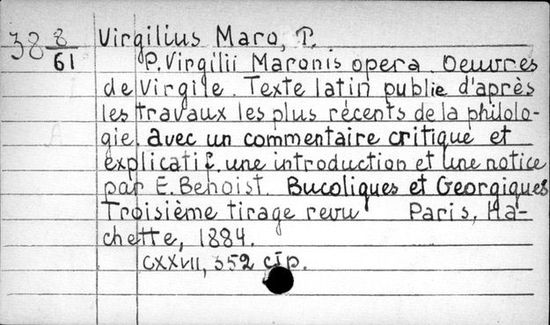 38 8/61 Virgilius Maro, P.
P. Virgilii Maronis opera. Oeuvres
de Virgile. Texte latin publie d'après
les travaux les plus récents de la philolo-
gie, avec un commentaire critique et
explicatif, une introduction et une notice
par E. Benoist. Bucoliques et Georgiques
Troisième tirage revu Paris, Ha-
chette, 1884.
CXXVII, 352 cтр.